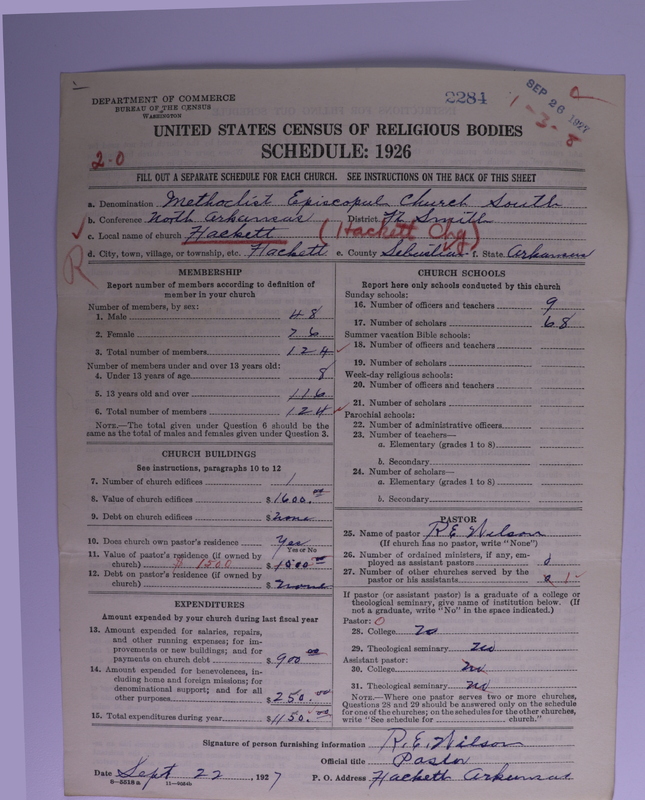 DEPARTMENT OF COMMERCE
BUREAU OF THE CENSUS
WASHINGTON
2284
SEP 26 1927
1-3-8
2-0
UNITED STATES CENSUS OF RELIGIOUS BODIES
SCHEDULE: 1926
FILL OUT A SEPARATE SCHEDULE FOR EACH CHURCH. SEE INSTRUCTIONS ON THE BACK OF THIS SHEET
a. Denomination Methodist Episcopal Church South
b. Conference North Arkansas District Ft Smith
c. Local name of church Hackett (Hackett Chg)
d. City, town, village, or township, etc. Hackett e. County Sebastian f. State Arkansas
R
MEMBERSHIP
Report number of members according to definition of
member in your church
Number of members, by sex:
1. Male 48
2. Female 76
3. Total number of members 124
Number of members under and over 13 years old:
4. Under 13 years of age 8
5. 13 years old and over 116
6. Total number of members 124
NOTE.—The total given under Question 6 should be the
same as the total of males and females given under Question 3.
CHURCH BUILDINGS
See instructions, paragraphs 10 to 12
7. Number of church edifices 1
8. Value of church edifices $1600.00
9. Debt on church edifices $none
10. Does church own pastor's residence Yes
Yes or No
11. Value of pastor's residence (if owned by
church) $1500 $1500.00
12. Debt on pastor's residence (if owned by
church) $none
EXPENDITURES
Amount expended by your church during last fiscal year
13. Amount expended for salaries, repairs,
and other running expenses; for im-
provements or new buildings; and for
payments on church debt $900.00
14. Amount expended for benevolences, in-
cluding home and foreign missions; for
denominational support; and for all
other purposes $250.00
15. Total expenditures during year $1150.00
CHURCH SCHOOLS
Report here only schools conducted by this church
Sunday schools:
16. Number of officers and teachers 9
17. Number of scholars 68
Summer vacation Bible schools:
18. Number of officers and teachers
19. Number of scholars
Week-day religious schools:
20. Number of officers and teachers
21. Number of scholars
Parochial schools:
22. Number of administrative officers
23. Number of teachers—
a. Elementary (grades 1 to 8)
b. Secondary
24. Number of scholars—
a. Elementary (grades 1 to 8)
b. Secondary
PASTOR
25. Name of pastor R E Wilson
(If church has no pastor, write "None")
26. Number of ordained ministers, if any, em-
ployed as assistant pastors 0
27. Number of other churches served by the
pastor or his assistants 1
If pastor (or assistant pastor) is a graduate of a college or
theological seminary, give name of institution below. (If
not a graduate, write "No" in the space indicated.)
Pastor: 0
28. College No
29. Theological seminary No
Assistant pastor:
30. College No
31. Theological seminary No
NOTE.—Where one pastor serves two or more churches,
Questions 28 and 29 should be answered only on the schedule
for one of the churches; on the schedules for the other churches,
write "See schedule for church."
Signature of person furnishing information R. E. Wilson
Official title Pastor
Date Sept 22, 1927 P. O. Address Hackett Arkansas
8-5518a